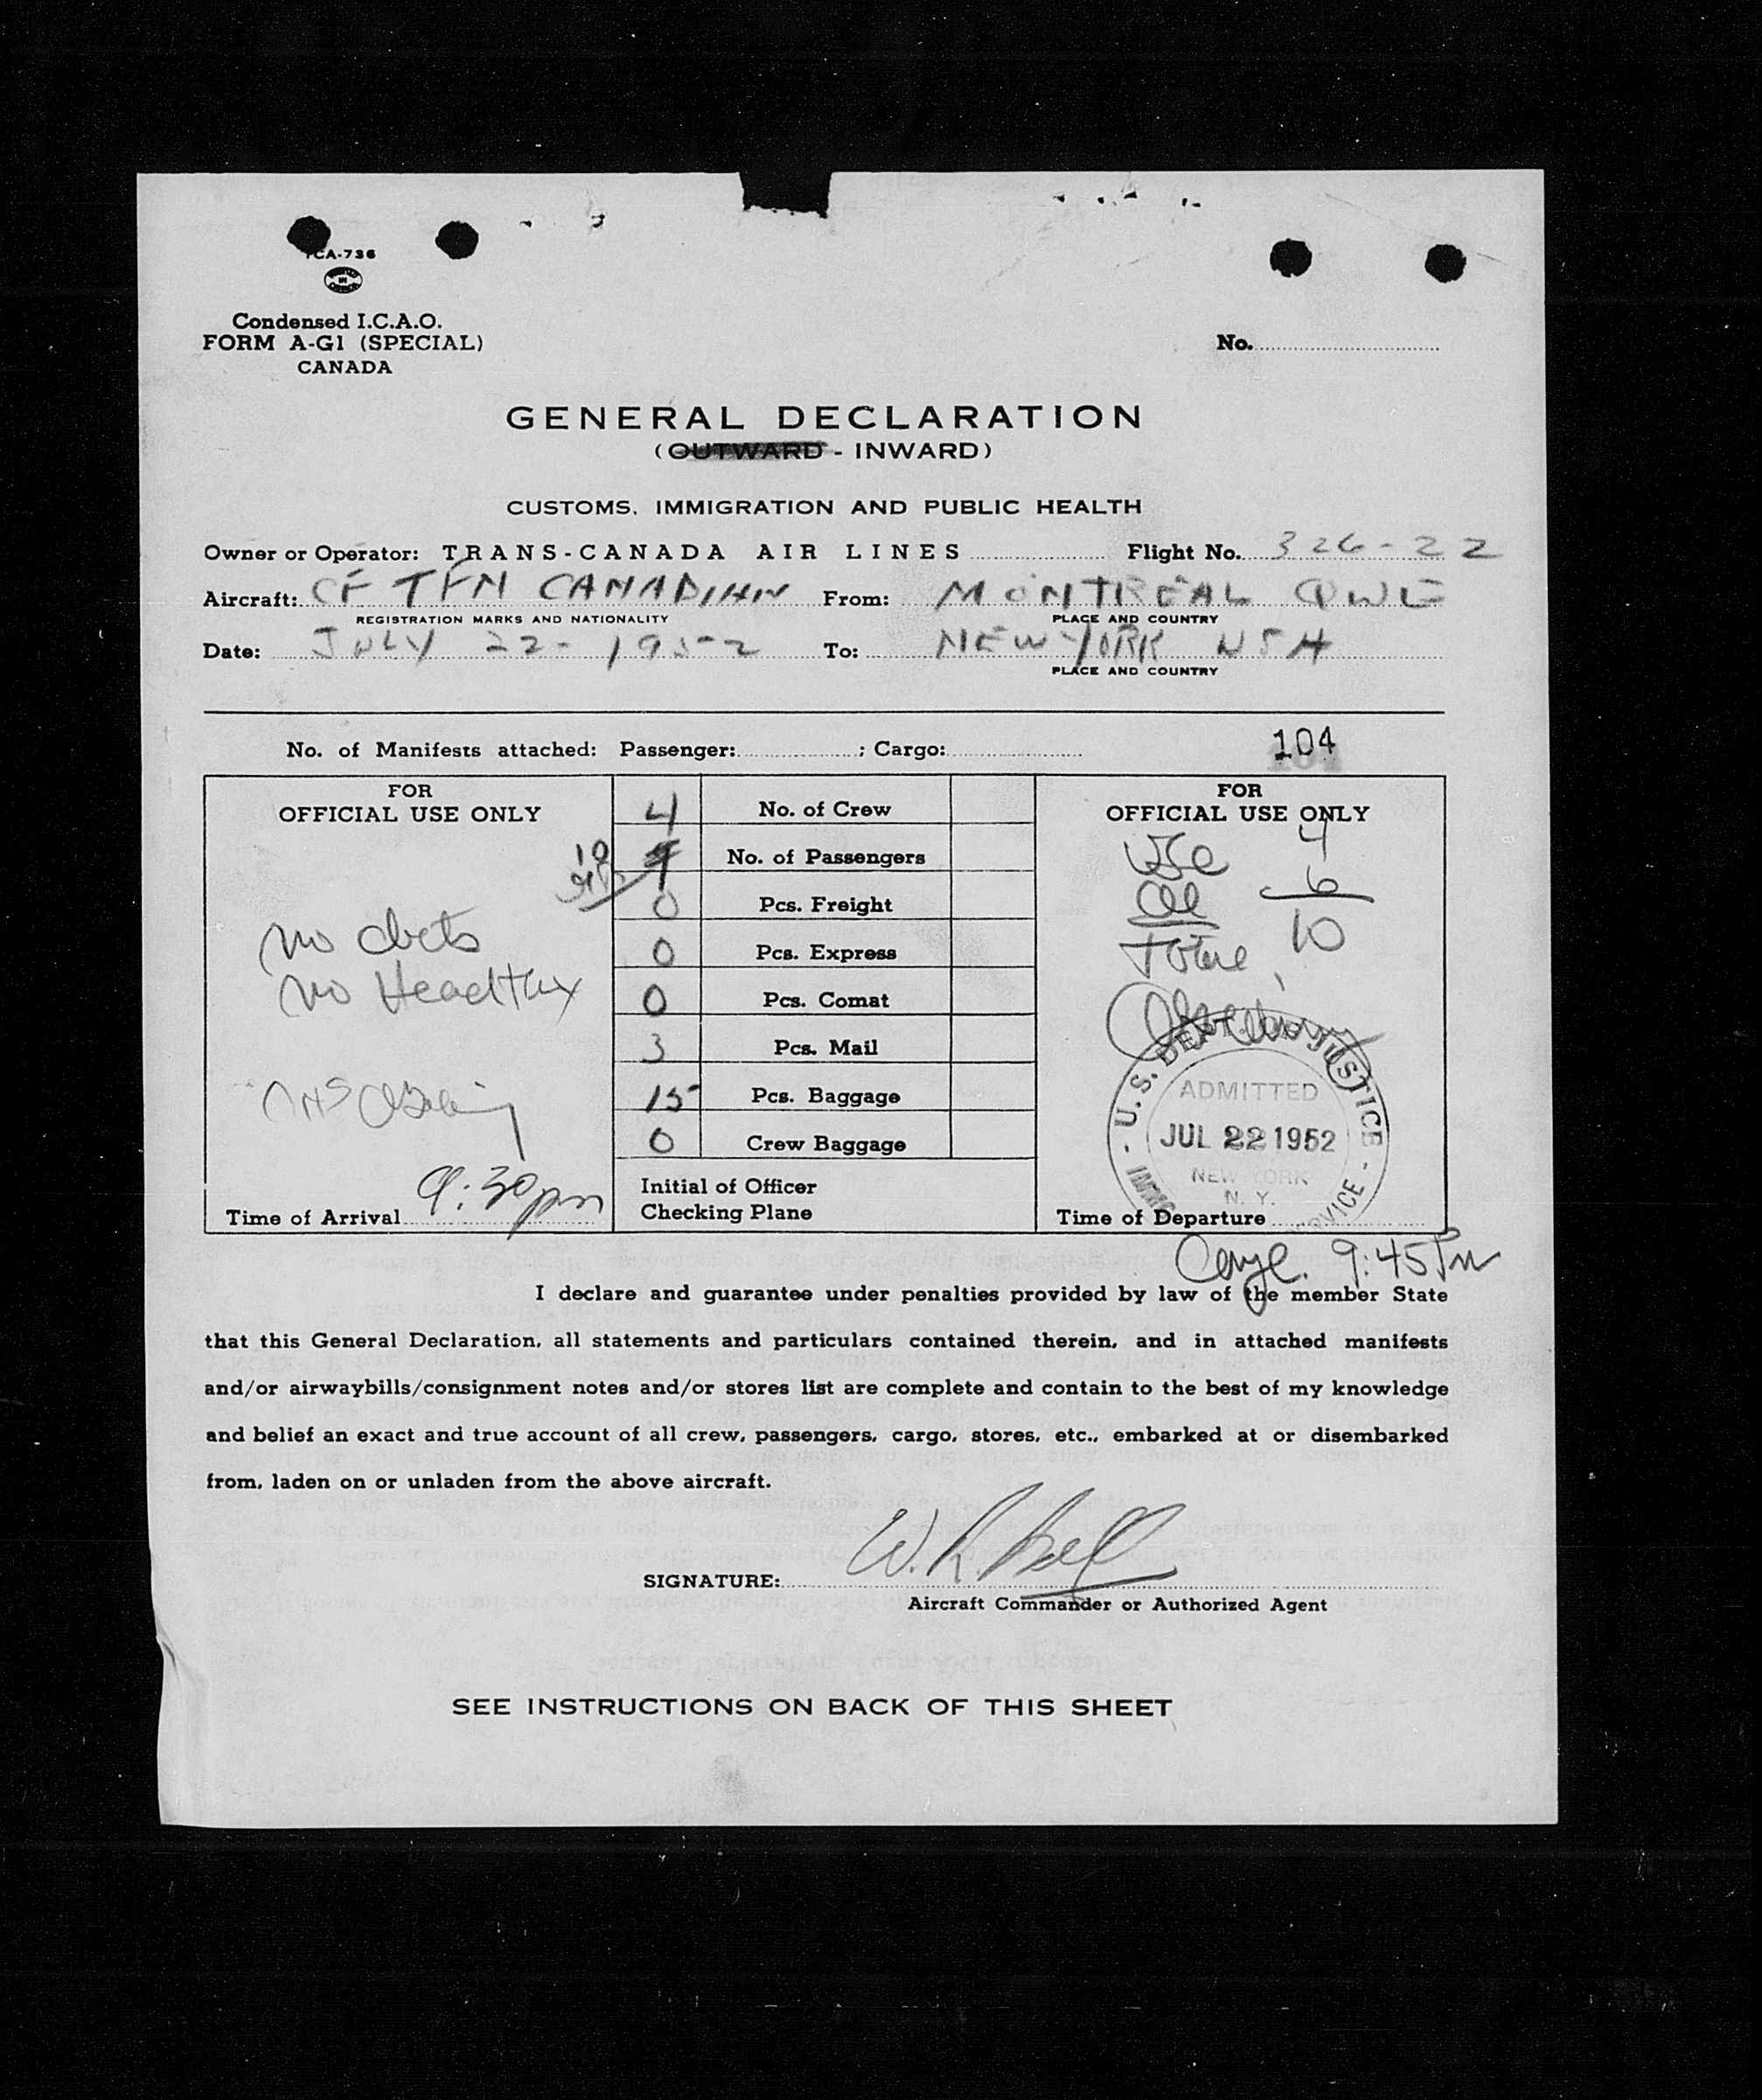 TCA-736
Condensed I.C.A.O.
FORM A-G1 (SPECIAL)
CANADA
No.
GENERAL DECLARATION
(OUTWARD - INWARD)
CUSTOMS, IMMIGRATION AND PUBLIC HEALTH
Owner or Operator: TRANS-CANADA AIR LINES Flight No. 326-22
Aircraft: CF TFM CANADIAN From: MONTREAL QUE
REGISTRATION MARKS AND NATIONALITY PLACE AND COUNTRY
Date: JULY 22-1952 To: NEW YORK USA
PLACE AND COUNTRY
No. of Manifests attached: Passenger: ; Cargo: 104
FOR
OFFICIAL USE ONLY
10
no
no Headtax
9:30pm
Time of Arrival
4 No. of Crew
No. of Passengers
0 Pcs. Freight
0 Pcs. Express
0 Pcs. Comat
3 Pcs. Mail
15 Pcs. Baggage
0 Crew Baggage
Initial of Officer
Checking Plane
FOR
OFFICIAL USE ONLY
USC 4
6
Total 10
U.S. DEPT. OF JUSTICE
ADMITTED
JUL 22 1952
NEW YORK
N. Y.
Time of Departure
9:45 Pm
I declare and guarantee under penalties provided by law of the member State
that this General Declaration, all statements and particulars contained therein, and in attached manifests
and/or airwaybills/consignment notes and/or stores list are complete and contain to the best of my knowledge
and belief an exact and true account of all crew, passengers, cargo, stores, etc., embarked at or disembarked
from, laden on or unladen from the above aircraft.
SIGNATURE: W.R. Bell
Aircraft Commander or Authorized Agent
SEE INSTRUCTIONS ON BACK OF THIS SHEET